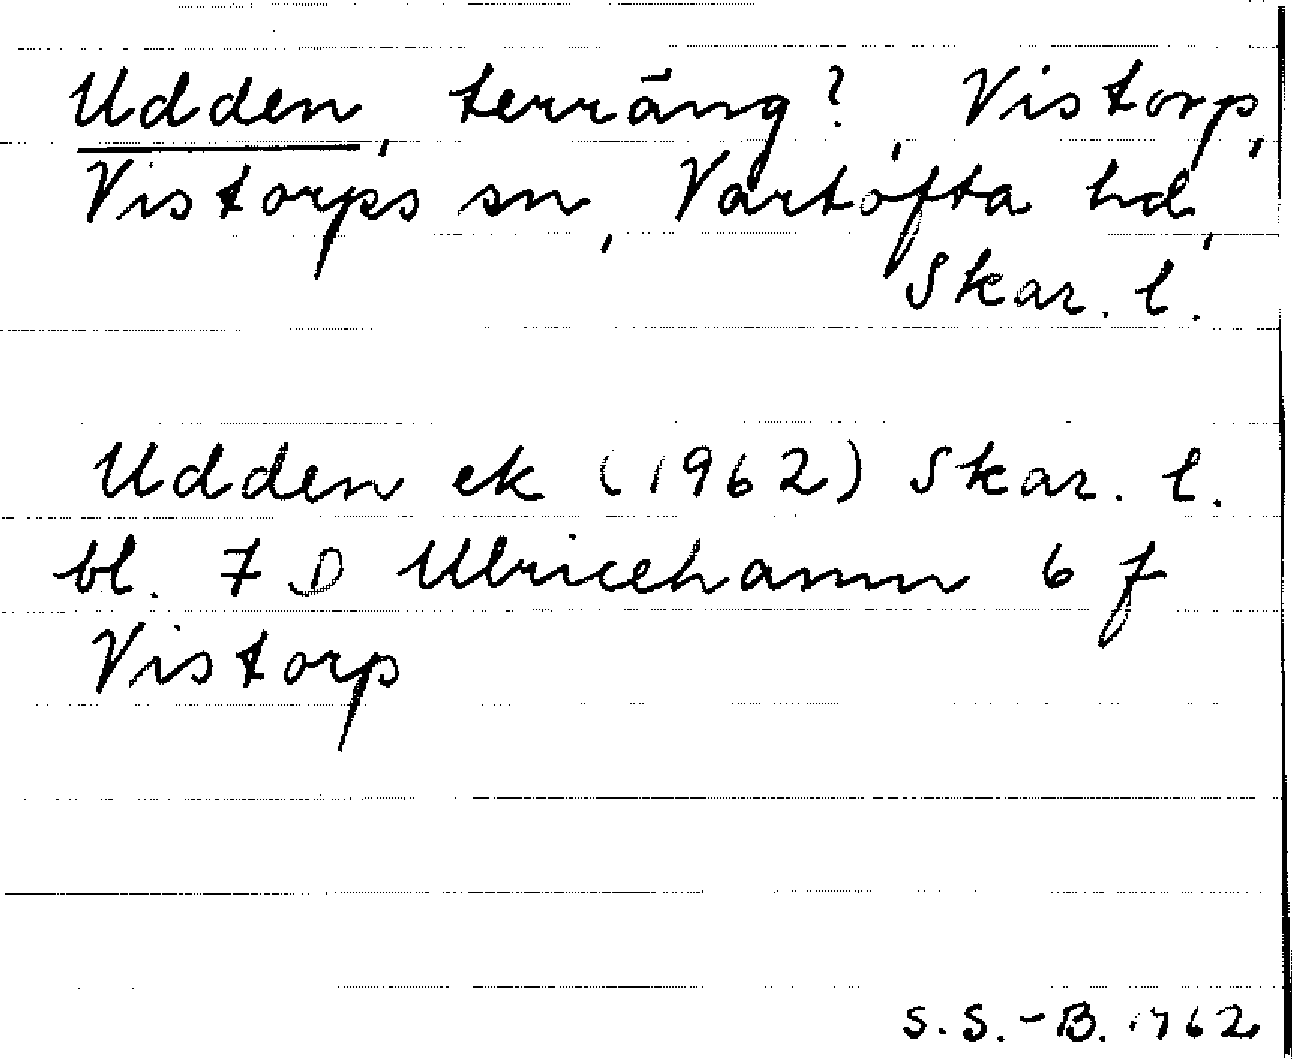 Udden, terräng?, Vistorp,
Vistorps sn, Vartofta hd,
Skar. l.
Udden ek (1962) Skar. l.
bl. 7 D Ulricehamn 6 f
Vistorp
S. S.-B. 1962